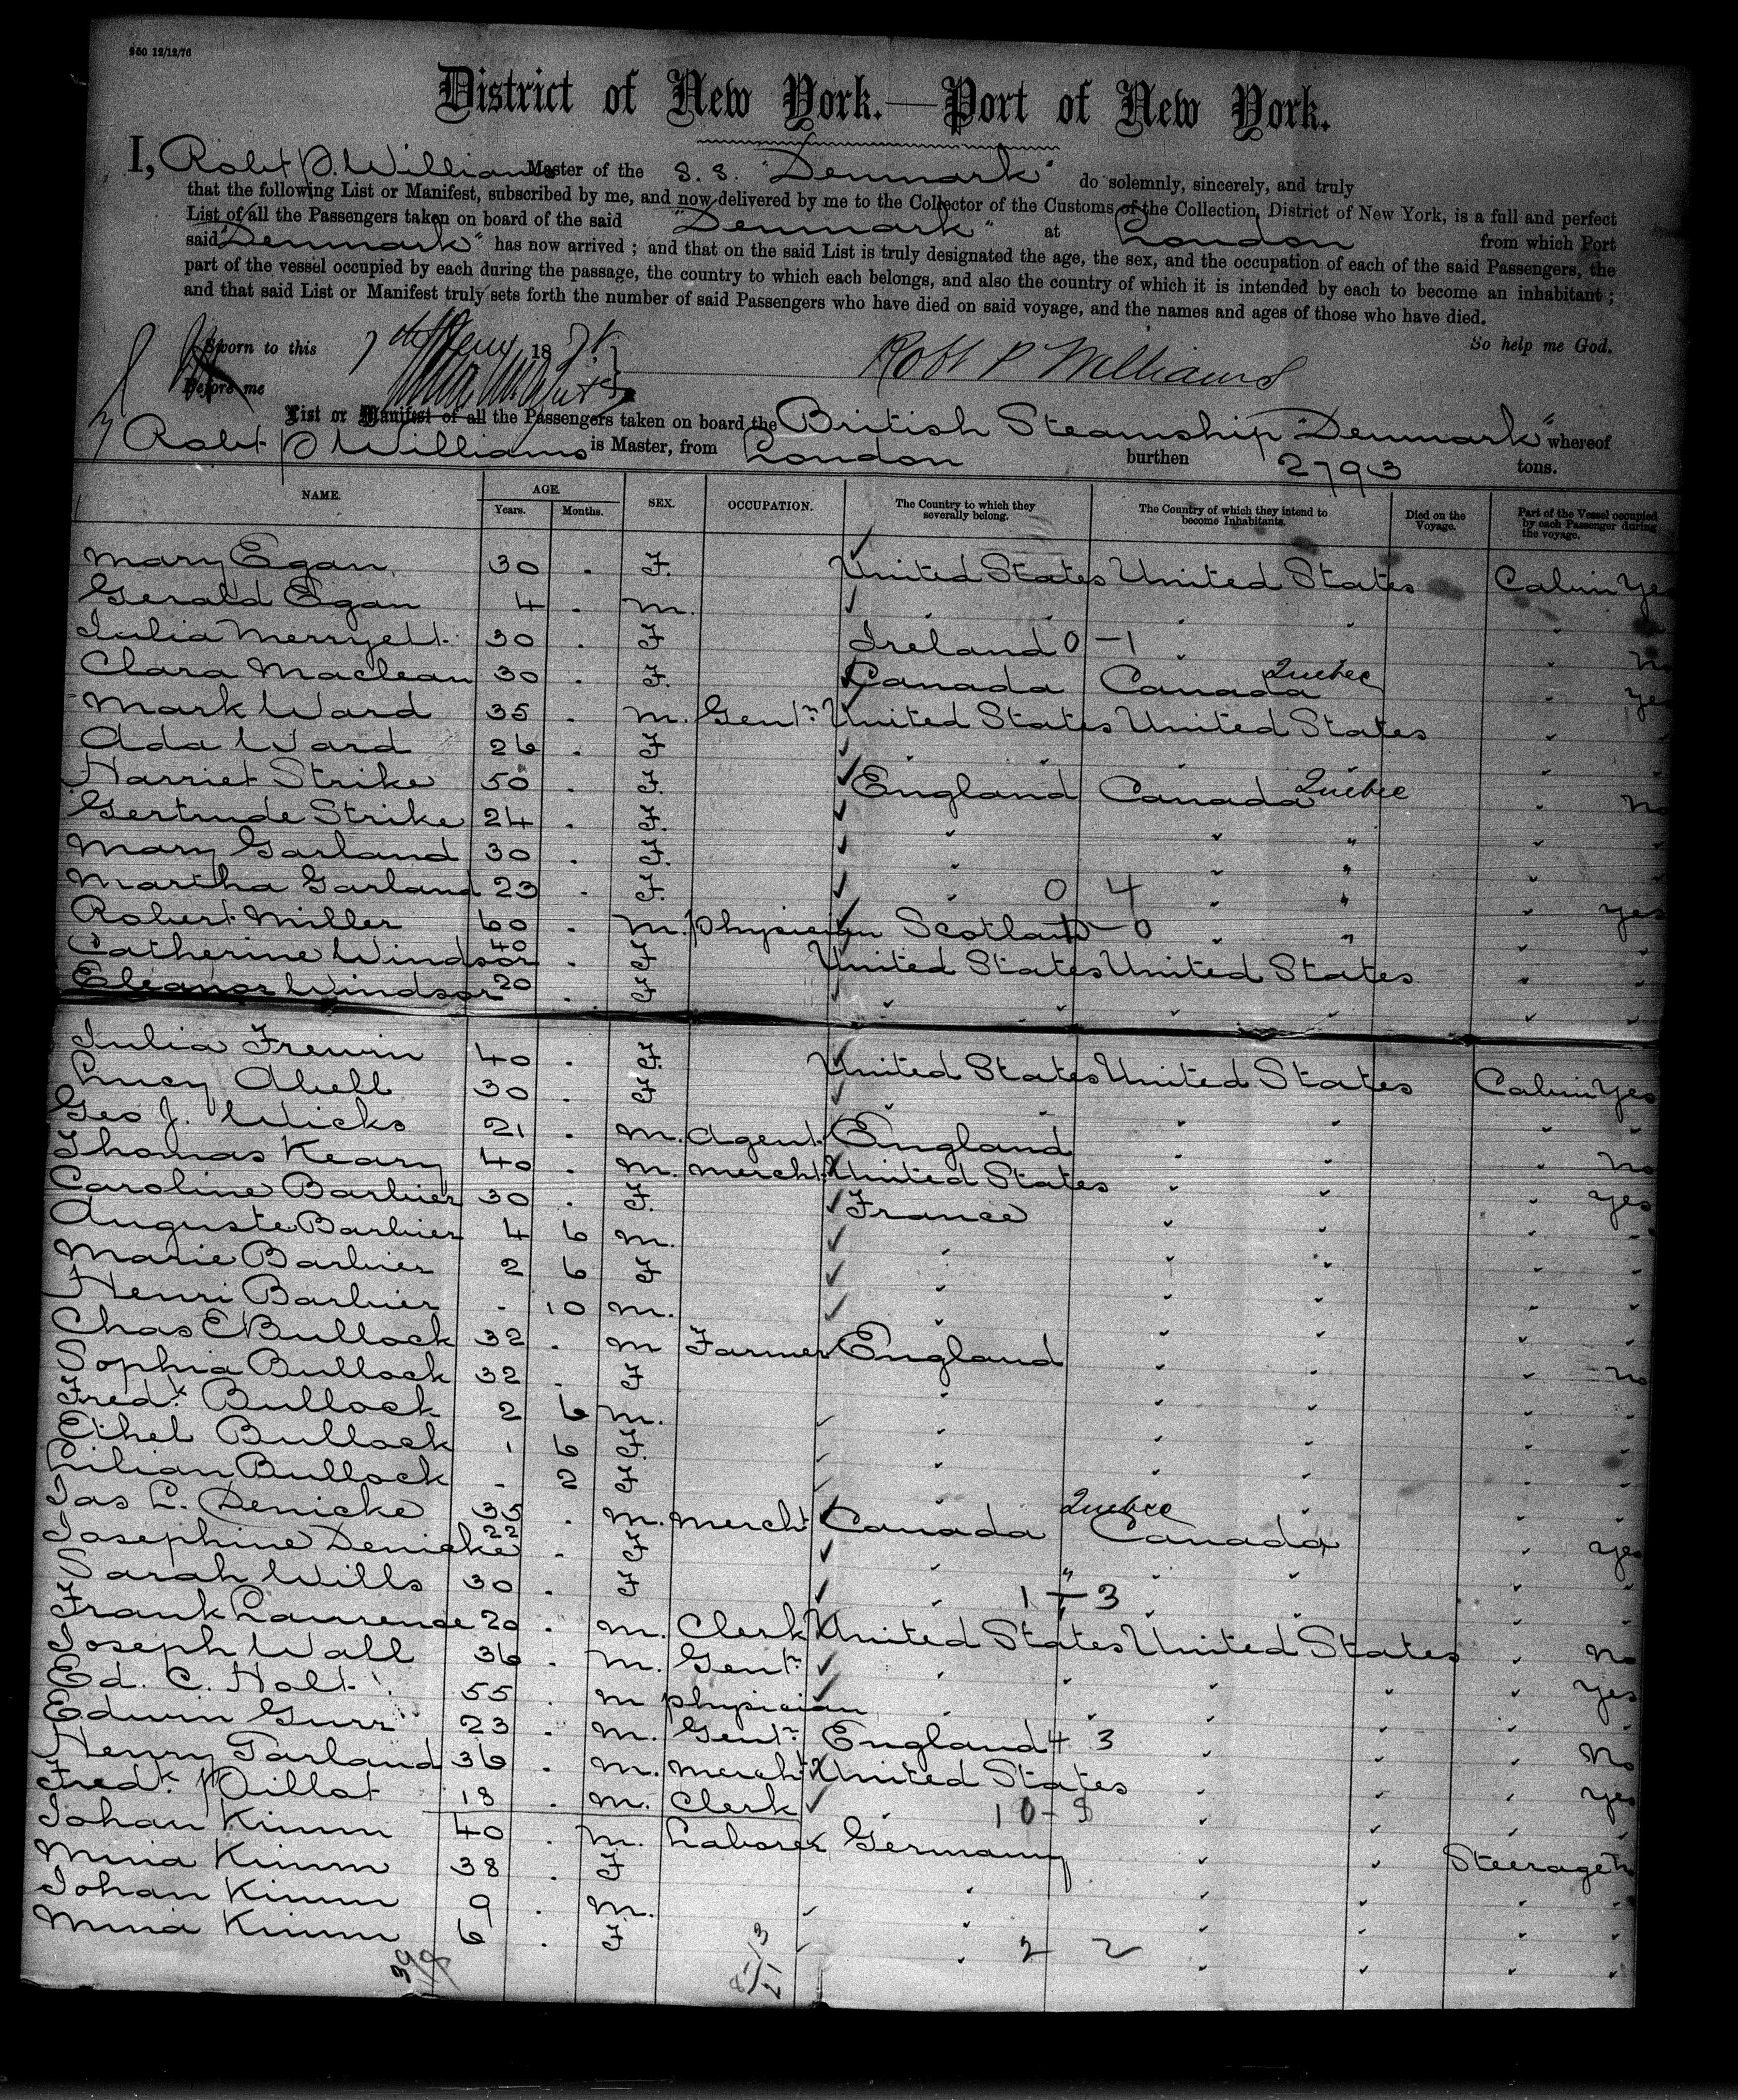 960 12/12/76
District of New York.—Port of New York.
I, Robt P. Williams Master of the S. S. "Denmark" do solemnly, sincerely, and truly
that the following List or Manifest, subscribed by me, and now delivered by me to the Collector of the Customs of the Collection District of New York, is a full and perfect
List of all the Passengers taken on board of the said "Denmark" at London from which Port
said "Denmark" has now arrived ; and that on the said List is truly designated the age, the sex, and the occupation of each of the said Passengers, the
part of the vessel occupied by each during the passage, the country to which each belongs, and also the country of which it is intended by each to become an inhabitant ;
and that said List or Manifest truly sets forth the number of said Passengers who have died on said voyage, and the names and ages of those who have died.
So help me God.
Sworn to this 7th 18
Before me
Robt P Williams
List or Manifest of all the Passengers taken on board the British Steamship "Denmark" whereof
Robt P Williams is Master, from London burthen 2793 tons.
NAME. AGE. Years. Months. SEX. OCCUPATION. The Country to which they severally belong. The Country of which they intend to become Inhabitants. Died on the Voyage. Part of the Vessel occupied by each Passenger during the voyage.
Mary Egan 30 . F. United States United States Cabin Yes
Gerald Egan 4 . M. " " " "
Julia Merryett 30 . F Ireland 0 - 1 " " No
Clara Maclean 30 . F. Canada Canada Quebec " Yes
Mark Ward 35 . M. Gentn United States United States " "
Ada Ward 26 . F " " " "
Harriet Strike 50 . F. England Canada Quebec " No
Gertrude Strike 24 . F. " " " " "
Mary Garland 30 . F. " " " " "
Martha Garland 23 . F. " 0 4 " " " Yes
Robert Miller 60 . M. Physician Scotland - 0 " " " "
Catherine Windsor 40 . F United States United States " "
Eleanor Windsor 20 . F " " " "
Julia Frewin 40 . F. United States United States Cabin Yes
Lucy Abell 30 . F " " " "
Geo J. Wicks 21 . M. Agent England " " " No
Thomas Keary 40 . M. Mercht United States " " " Yes
Caroline Barbier 30 . F. France " " " "
Auguste Barbier 4 6 M. " " " " "
Marie Barbier 2 6 F " " " " "
Henri Barbier . 10 M. " " " " "
Chas E Bullock 32 . M Farmer England " " " No
Sophia Bullock 32 . F " " " " "
Fredk Bullock 2 6 M. " " " " "
Ethel Bullock 1 6 F. " " " " "
Lilian Bullock - 2 F " " " " "
Jas L. Denicke 35 . M. Mercht Canada Quebec Canada " Yes
Josephine Denicke 22 . F " " " " "
Sarah Wills 30 . F " 1 - 3 " " " "
Frank Laurence 20 . M. Clerk United States United States " No
Joseph Wall 36 . M. Gentn " " " " Yes
Ed. C. Holt 55 . M Physician " " " " "
Edwin Gurr 23 . M. Gentn England 4 3 " " " No
Henry Tarland 36 . M. Mercht United States " " " Yes
Fredk Pillot 18 . M. Clerk " 10 - 8 " " " "
Johan Kimm 40 . M. Laborer Germany " " Steerage No
Mina Kimm 38 . F " " " " "
Johan Kimm 9 . M. " " " " "
Mina Kimm 6 . F " 2 2 " " " "